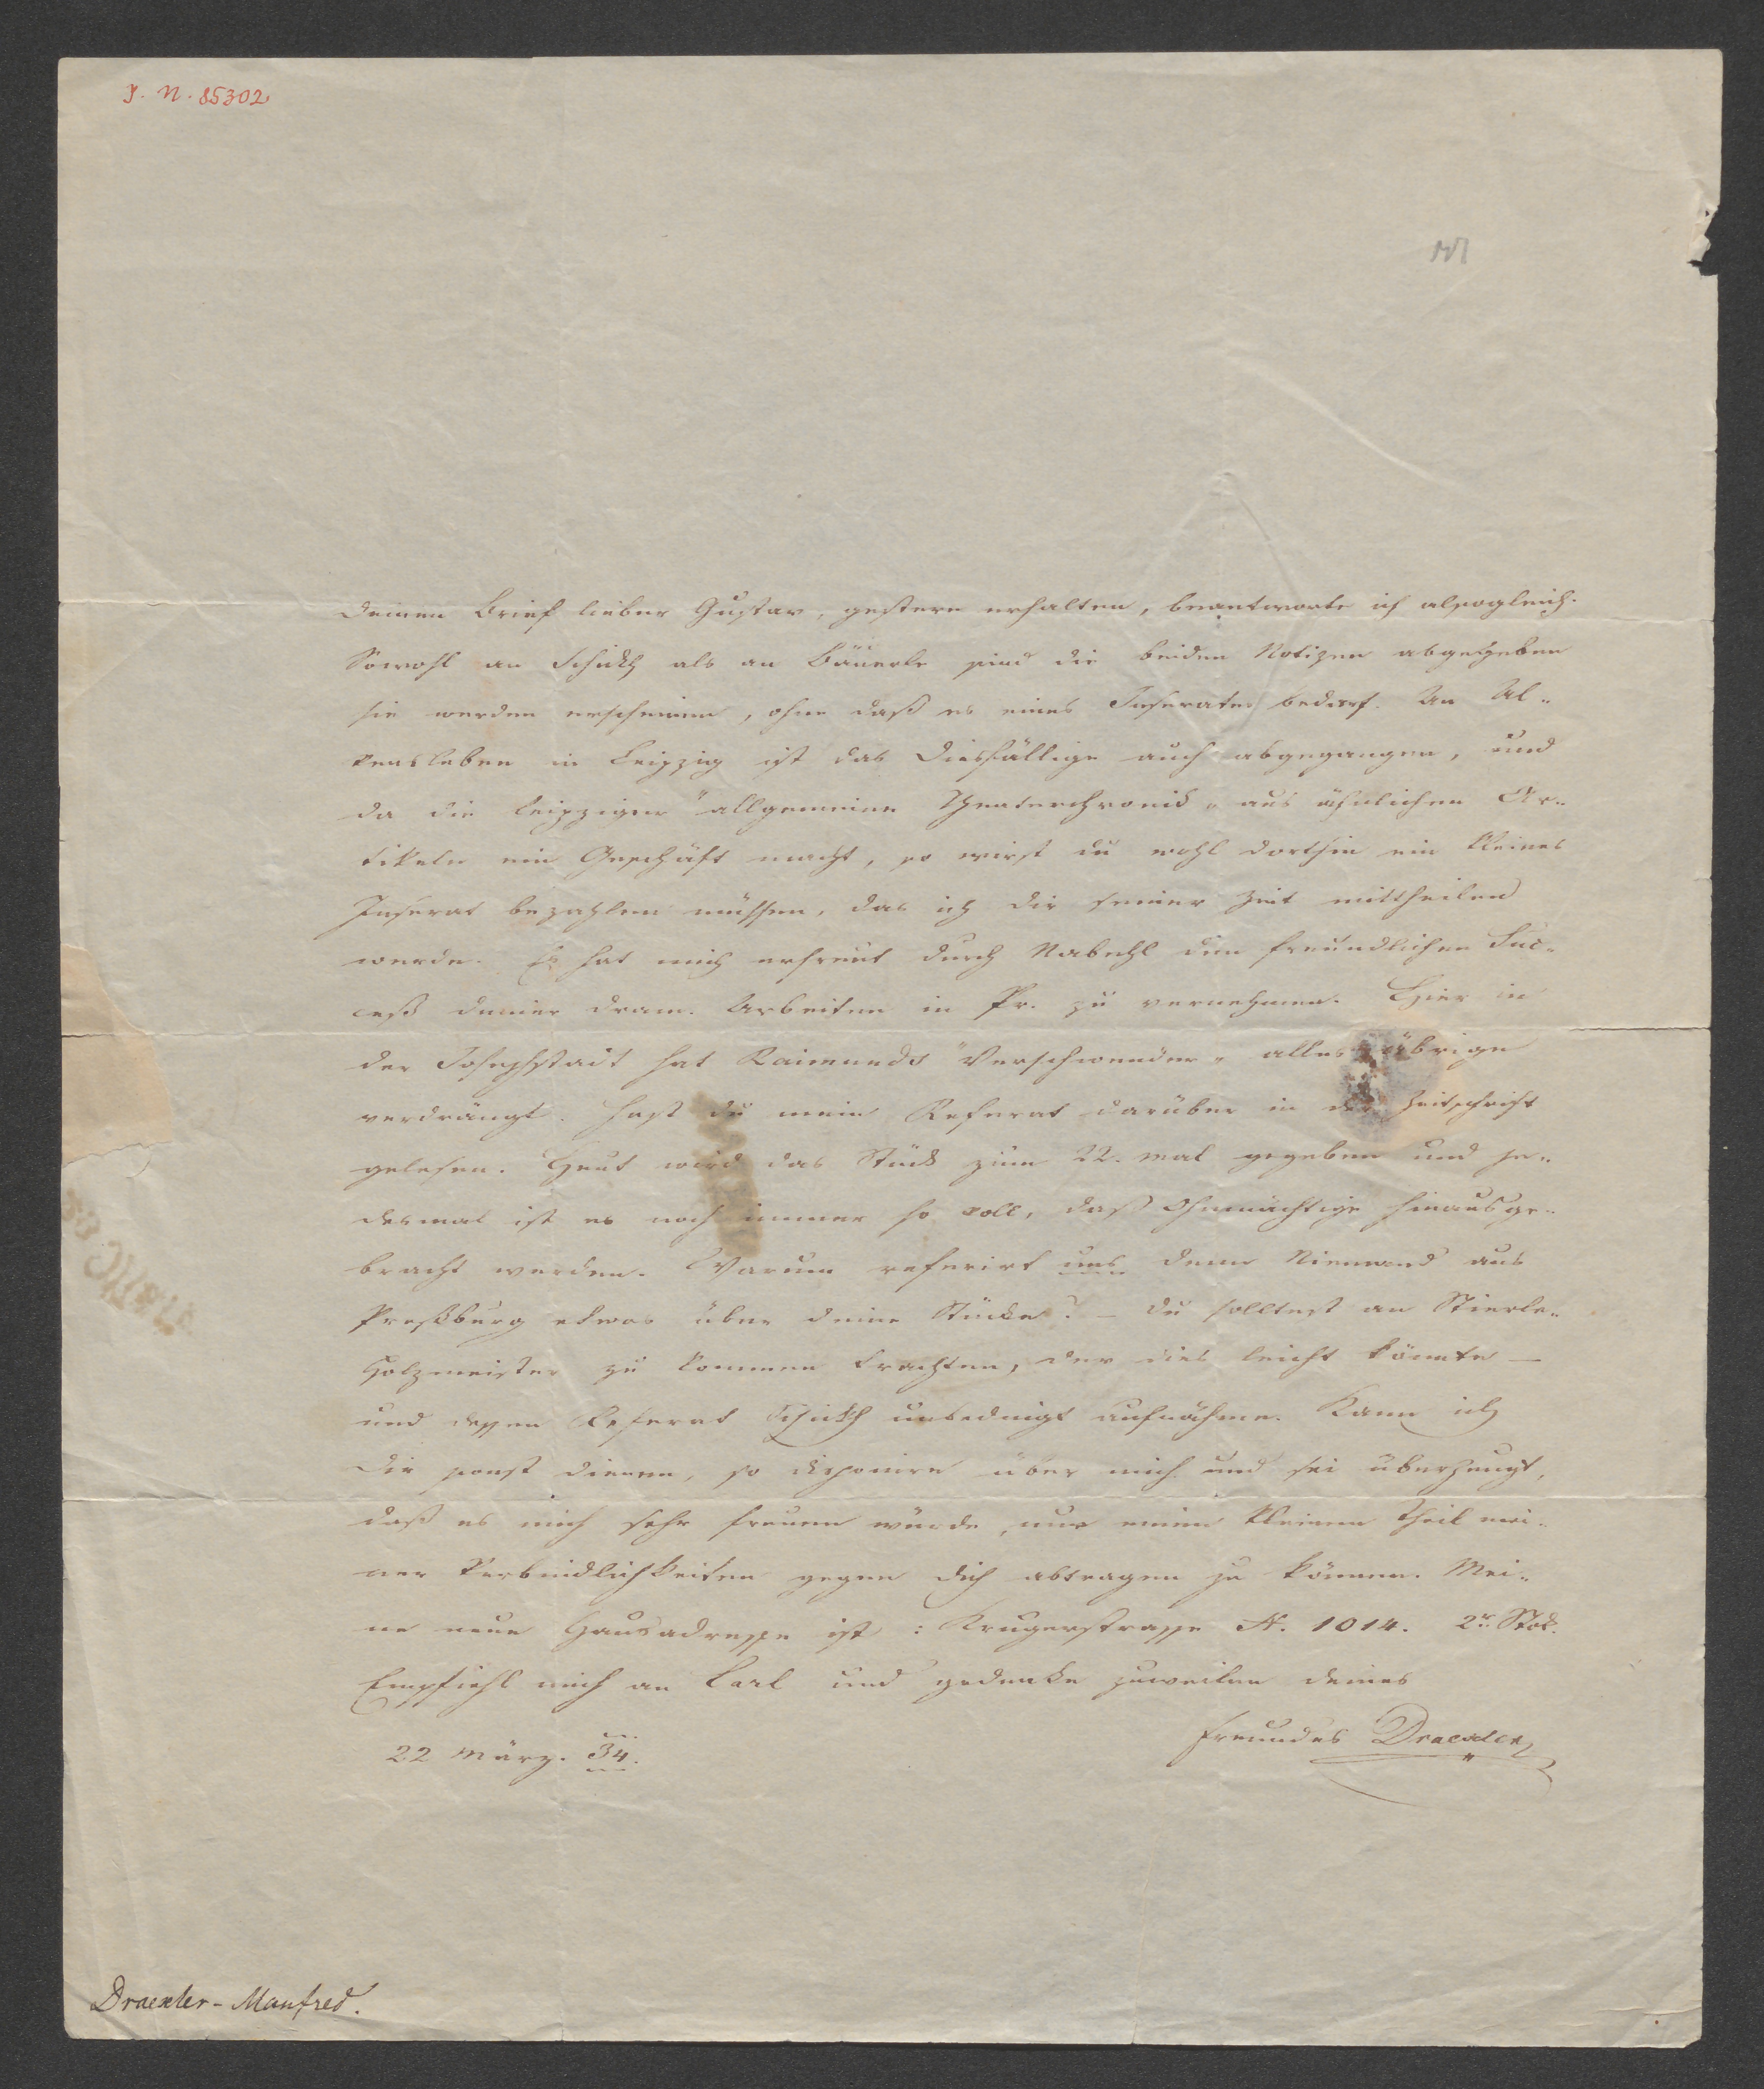 I. N. 85302
Deinen Brief lieber Gustav, gestern erhalten, beantworte ich alsogleich.
Sowohl an Schickh als an Bäuerle sind die beiden Notizen abgegeben
sie werden erscheinen, ohne daß es eines Inserates bedarf. An Al-
vensleben in Leipzig ist das Diesfällige auch abgegangen, und
da die Leipziger "allgemeine Theaterchronik" aus ähnlichen Ar-
tikeln ein Geschäft macht, so wirst du wohl dorthin ein kleines
Inserat bezahlen müssen, das ich dir seiner Zeit mittheilen
werde. Es hat mich erfreut durch Nabehl den freundlichen Suc-
ceß deiner dram. Arbeiten in Pr. zu vernehmen. Hier in
der Josephstadt hat Raimunds "Verschwender" alles übrige
verdrängt. Hast du mein Referat darüber in der Zeitschrift
gelesen. Heut wird das Stück zum 22. mal gegeben und je-
desmal ist es noch immer so voll, daß Ohnmächtige hinausge-
bracht werden. Warum referirt uns denn Niemand aus
Preßburg etwas über deine Stücke? – Du solltest an Stierle-
Holzmeister zu kommen trachten, der dies leicht könnte –
und dessen Referat Schickh unbedingt aufnähme. Kann ich
dir sonst dienen, so disponire über mich und sei überzeugt,
daß es mich sehr freuen würde, nur einen kleinen Theil mei-
ner Verbindlichkeiten gegen dich abtragen zu können. Mei-
ne neue Hausadresse ist: Krugerstrasse N. 1014. 2r Stok.
Empfiehl mich an Carl und gedenke zuweilen deines
Freundes Draexler
22 März. 34.
Draexler-Manfred.